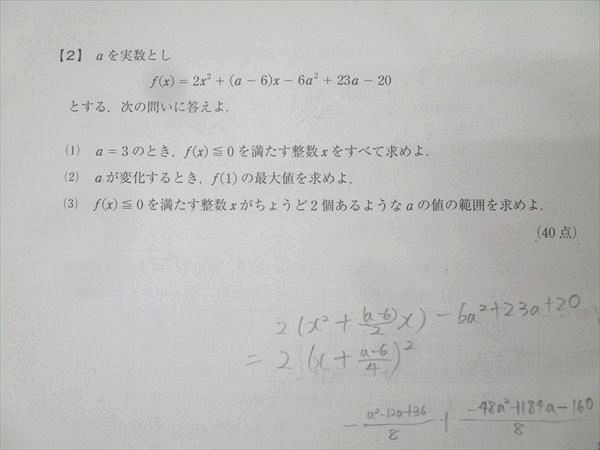 【2】 aを実数とし
f(x) = 2x² + (a − 6)x − 6a² + 23a − 20
とする. 次の問いに答えよ.
(1) a = 3 のとき, f(x) ≦ 0 を満たす整数 x をすべて求めよ.
(2) a が変化するとき, f(1) の最大値を求めよ.
(3) f(x) ≦ 0 を満たす整数 x がちょうど 2 個あるような a の値の範囲を求めよ.
(40 点)
2(x² + (a−6)/2 x) − 6a² + 23a + 20
= 2(x + (a−6)/4)²
− (a²−12a+36)/8 + (−48a²+184a−160)/8